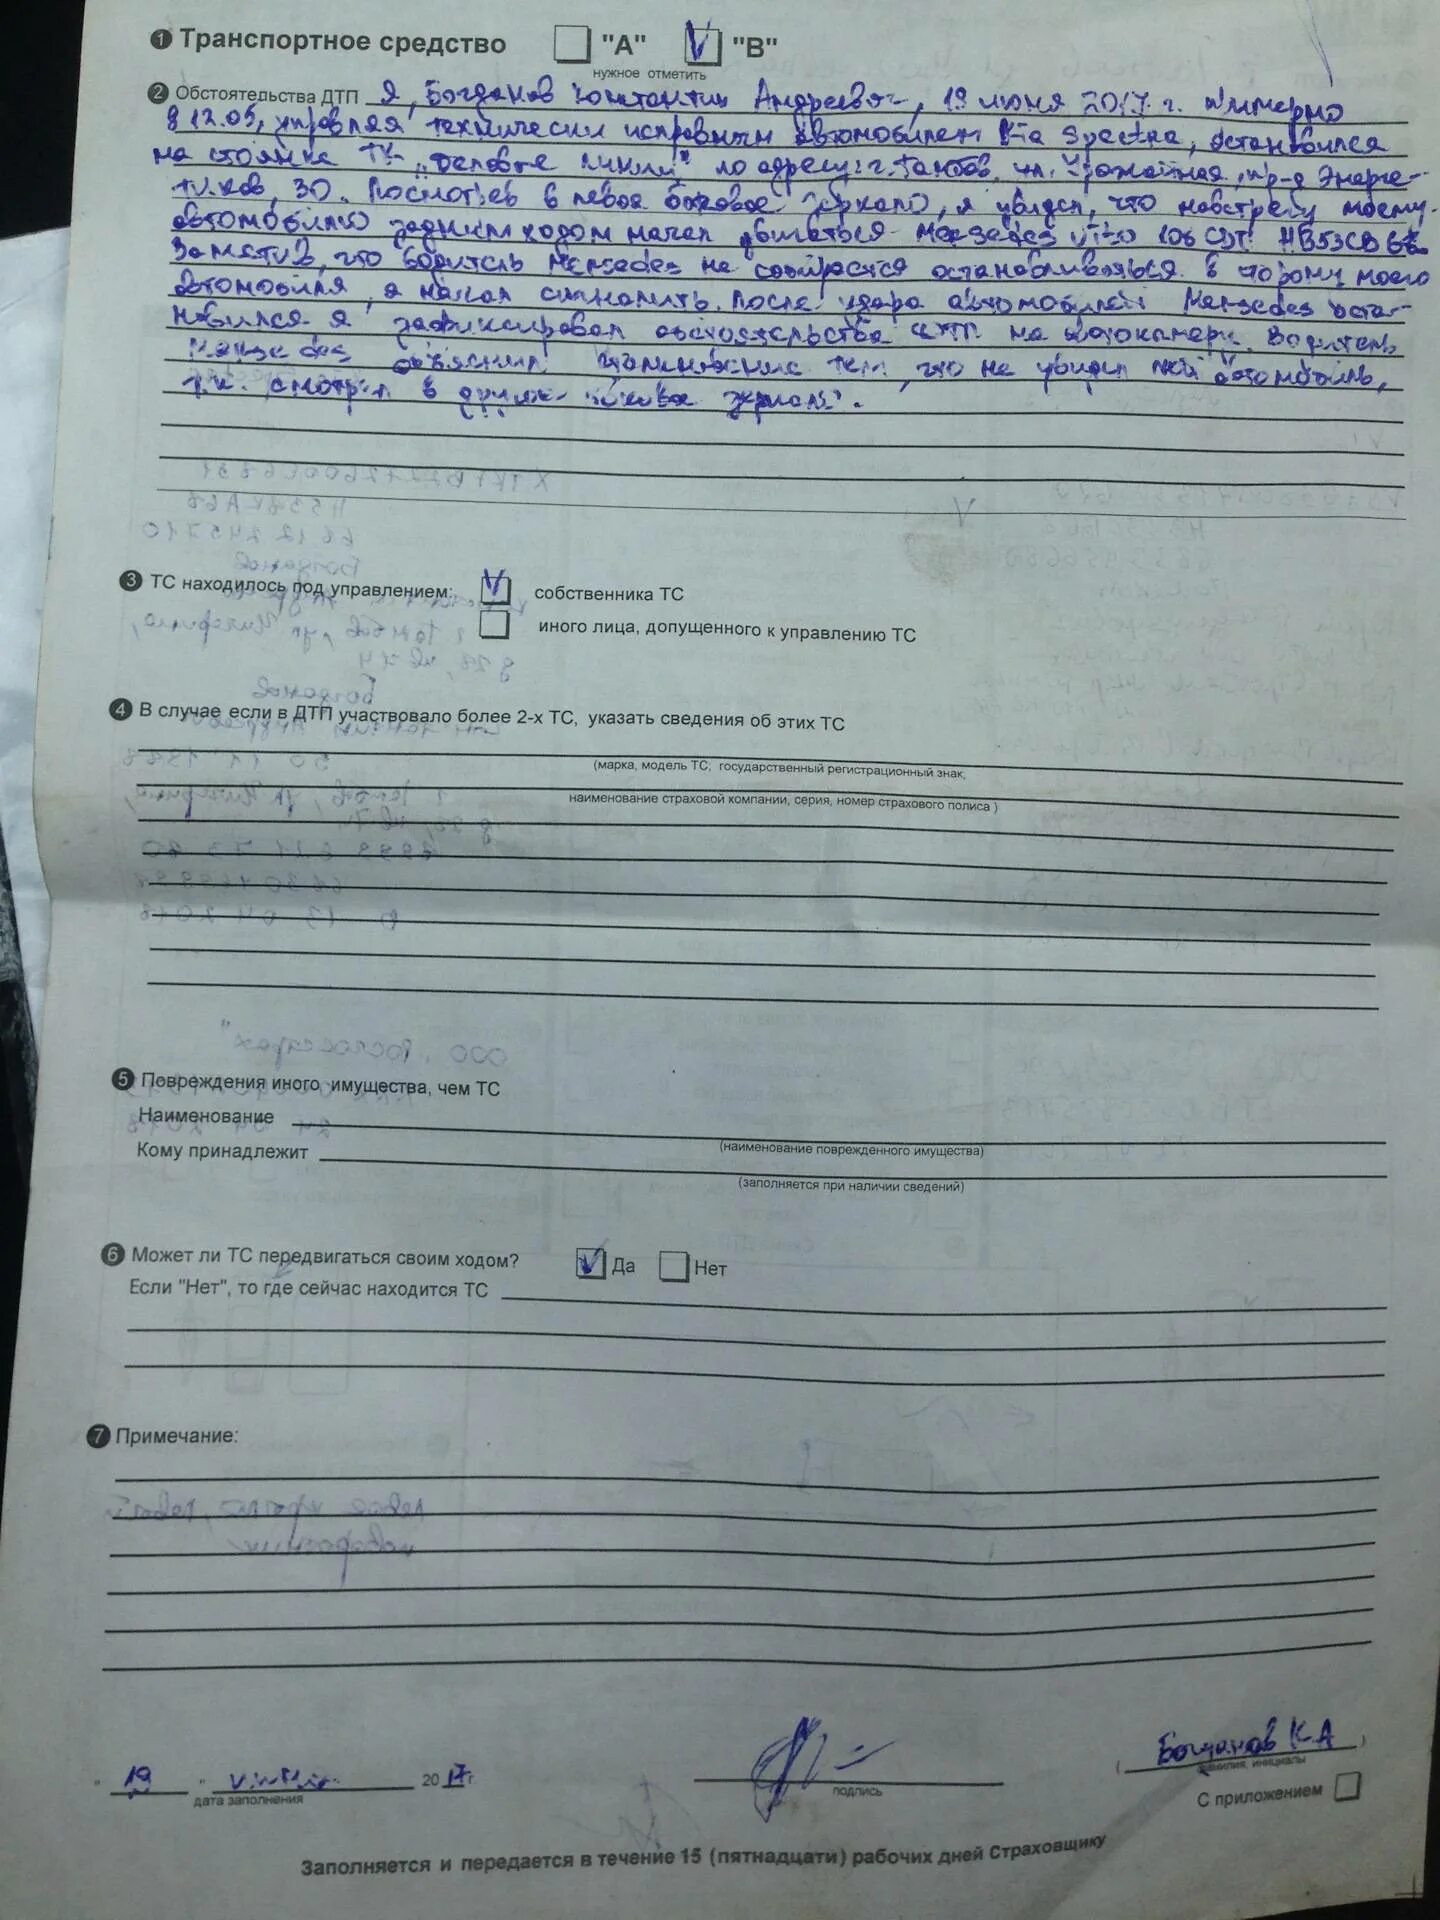 1 Транспортное средство "А" V "В"
нужное отметить
2 Обстоятельства ДТП Я, Богданов Константин Андреевич, 19 июня 2017 г. примерно
в 12.05, управляя технически исправным автомобилем Kia Spectra, остановился
на стоянке ТК "Деловые линии" по адресу: г. Тамбов, ул. Урожайная, пр-д Энерге-
тиков, 30. Посмотрев в левое боковое зеркало, я увидел, что навстречу моему
автомобилю задним ходом начал двигаться Mersedes Vito 108 CDI
Заметив, что водитель Mersedes не собирается останавливаться в сторону моего
автомобиля, я начал сигналить. После удара автомобилей Mersedes оста-
новился. Я зафиксировал обстоятельства ДТП на фотокамеру. Водитель
Mersedes объяснил столкновение тем, что не увидел мой автомобиль,
т.к. смотрел в другое боковое зеркало.
3 ТС находилось под управлением: V собственника ТС
иного лица, допущенного к управлению ТС
4 В случае если в ДТП участвовало более 2-х ТС, указать сведения об этих ТС
(марка, модель ТС, государственный регистрационный знак,
наименование страховой компании, серия, номер страхового полиса )
5 Повреждения иного имущества, чем ТС
Наименование
(наименование поврежденного имущества)
Кому принадлежит
(заполняется при наличии сведений)
6 Может ли ТС передвигаться своим ходом? V Да Нет
Если "Нет", то где сейчас находится ТС
7 Примечание:
" 19 " июня 2017 г
дата заполнения
подпись
( Богданов К.А )
фамилия, инициалы
С приложением
Заполняется и передается в течение 15 (пятнадцати) рабочих дней Страховщику